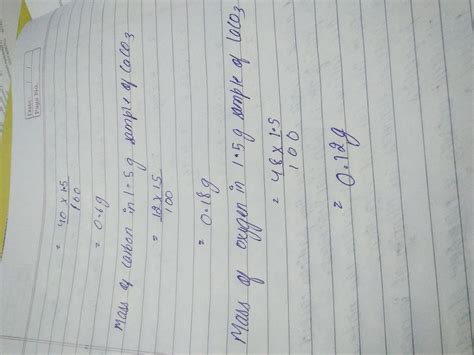 Date:
Page No.
= 40 x 1.5
100
= 0.6g
Mass of carbon in 1.5 g sample of CaCO3
= 12 x 15
100
= 0.18g
Mass of oxygen in 1.5 g sample of CaCO3
= 48 x 1.5
100
= 0.12g